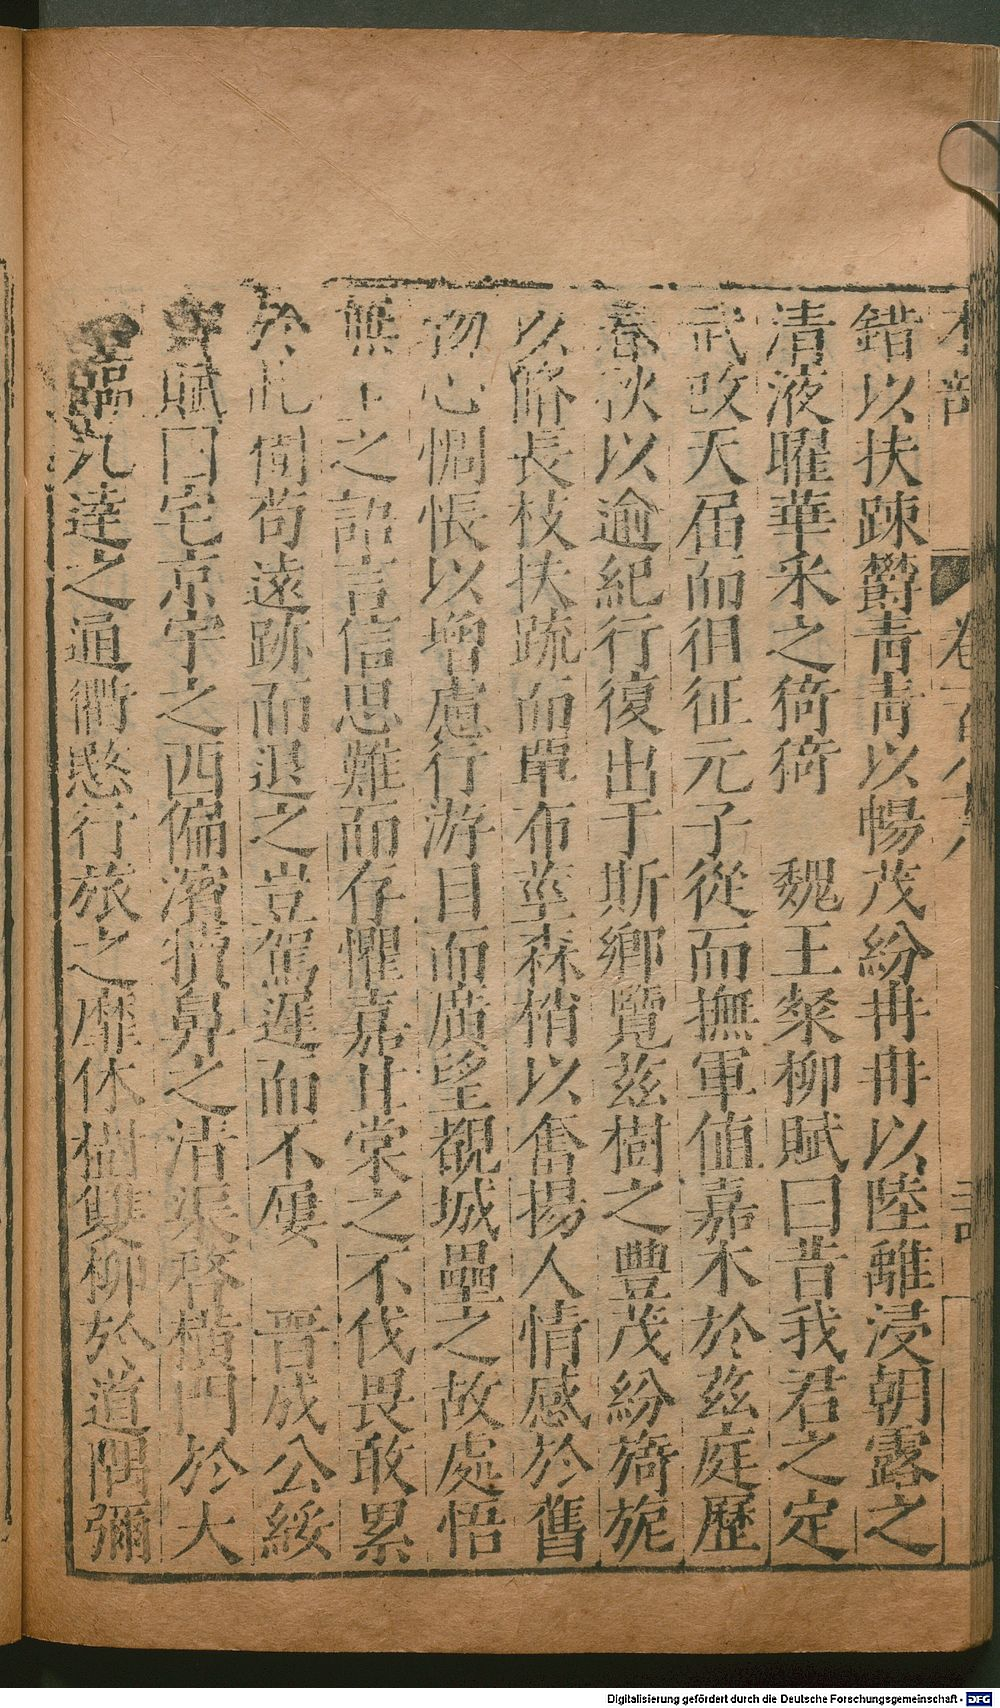 木部 卷
錯以扶踈欝青青以暢茂紛冉冉以陸離浸朝露之
清液曜華釆之猗猗 魏王粲柳賦曰昔我君之定
武攺天届而徂征元子從而撫軍値嘉木於兹庭歷
春秋以逾紀行復出于斯鄉覽兹樹之豐茂紛旖旎
以脩長枝扶疏而單布莖森梢以奮揚人情感於舊
物心惆悵以增慮行游目而廣望覩城壘之故處悟
無 之詔言信思難而存懼嘉甘棠之不伐畏敢累
於此 苟遠跡而退之豈駕遲而不屢 晉成公綏
賦曰宅京宇之西偏濱 之清渠啓横門於大
臨九達之通衢愍行旅之靡休樹雙柳於道隅彌
Digitalisierung gefördert durch die Deutsche Forschungsgemeinschaft - DFG